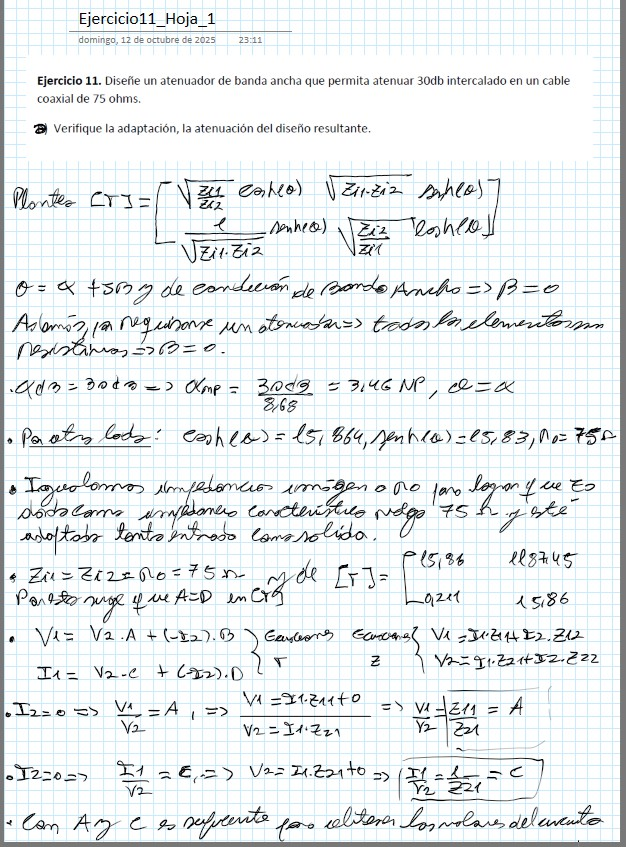 Ejercicio11_Hoja_1
domingo, 12 de octubre de 2025 23:11
Ejercicio 11. Diseñe un atenuador de banda ancha que permita atenuar 30db intercalado en un cable
coaxial de 75 ohms.
Verifique la adaptación, la atenuación del diseño resultante.
Planteo [T] = [ √(Zi1/Zi2) cosh(θ) √(Zi1·Zi2) senh(θ)
1/√(Zi1·Zi2) senh(θ) √(Zi2/Zi1) cosh(θ) ]
θ = α + jβ y de condición de Banda Ancha => β = 0
Además, requiere un atenuador => todos los elementos son
resistivos => β = 0.
· αdB = 30dB => αNP = 30dB/8,68 = 3,46 NP, θ = α
• Por otro lado: cosh(θ) = 15,864, senh(θ) = 15,83, r0 = 75Ω
• Igualamos impedancias imagen a r0 para lograr que Zo
dada como impedancia característica valga 75 Ω y esté
adaptada tanto entrada como salida.
• Zi1 = Zi2 = r0 = 75 Ω y de [T] = [ 15,86 1187,45
Para esto surge que A=D en [T] 0,211 15,86 ]
• V1 = V2·A + (-I2)·B } Ecuaciones Ecuaciones { V1 = I1·Z11 + I2·Z12
I1 = V2·C + (-I2)·D T Z V2 = I1·Z21 + I2·Z22
• I2=0 => V1/V2 = A, => V1 = I1·Z11 + 0 / V2 = I1·Z21 => V1/V2 = Z11/Z21 = A
• I2=0 => I1/V2 = C, => V2 = I1·Z21 + 0 => I1/V2 = 1/Z21 = C
• Con A y C es suficiente para obtener los valores del circuito